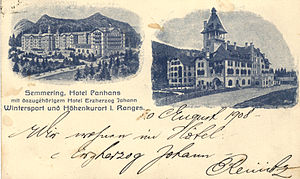 Semmering, Hotel Panhans
mit dazugehörigem Hotel Erzherzog Johann
Wintersport und Höhenkurort I. Ranges.
August 1908
Wir wohnen im Hôtel
Erzherzog Johann